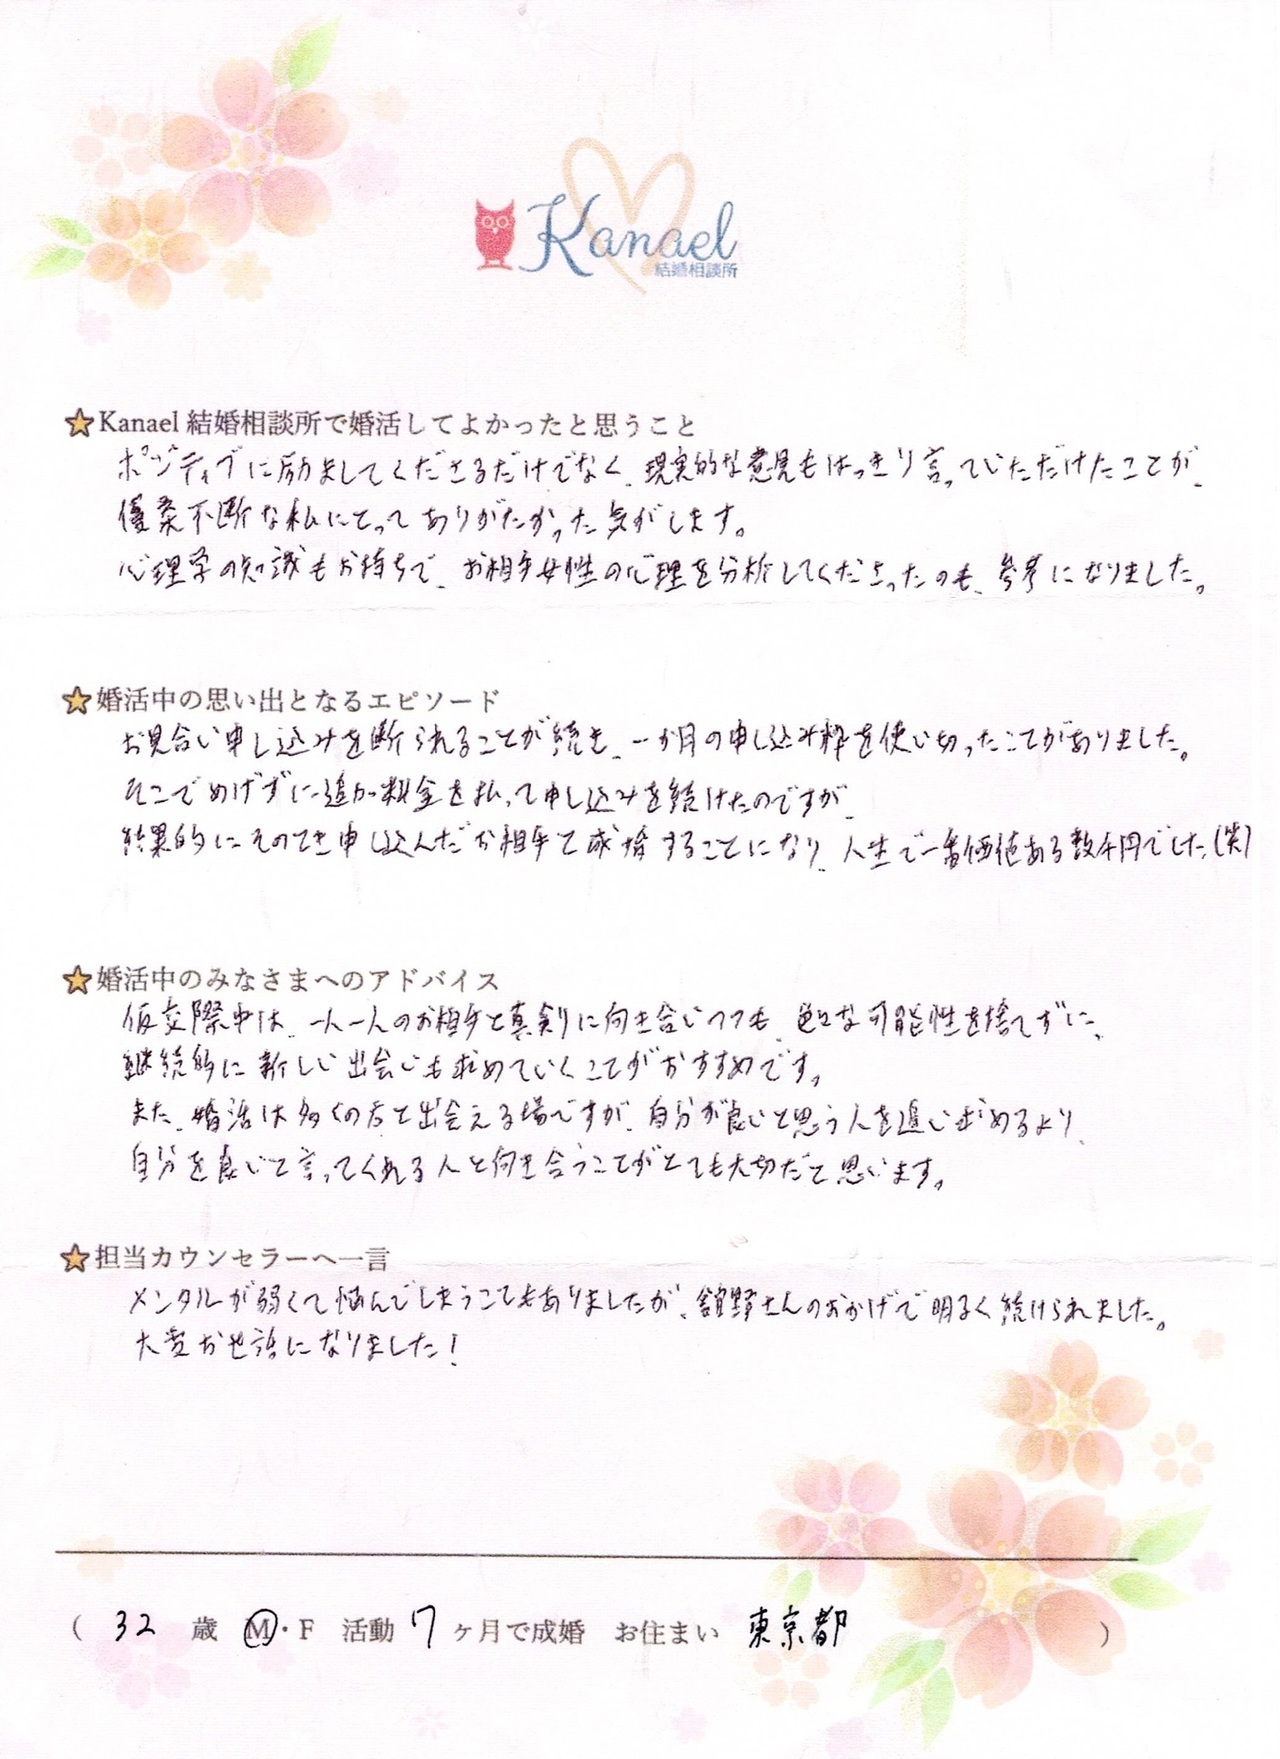 Kanael
結婚相談所
Kanael 結婚相談所で婚活してよかったと思うこと
ポジティブに励ましてくださるだけでなく、現実的な意見もはっきり言っていただけたことが、
優柔不断な私にとってありがたかった気がします。
心理学の知識もお持ちで、お相手女性の心理を分析してくださったのも、参考になりました。
婚活中の思い出となるエピソード
お見合い申し込みを断られることが続き、一か月の申し込み枠を使い切ったことがありました。
そこでめげずに追加料金を払って申し込みを続けたのですが、
結果的にそのとき申し込んだお相手と成婚することになり、人生で一番価値ある数千円でした(笑)
婚活中のみなさまへのアドバイス
仮交際中は、一人一人のお相手と真剣に向き合いつつも、色々な可能性を捨てずに、
継続的に新しい出会いも求めていくことがおすすめです。
また、婚活は多くの方と出会える場ですが、自分が良いと思う人を追い求めるより、
自分を良いと言ってくれる人と向き合うことがとても大切だと思います。
担当カウンセラーへ一言
メンタルが弱くて悩んでしまうこともありましたが、舘野さんのおかげで明るく続けられました。
大変お世話になりました!
( 32 歳 M・F 活動 7 ヶ月で成婚 お住まい 東京都 )